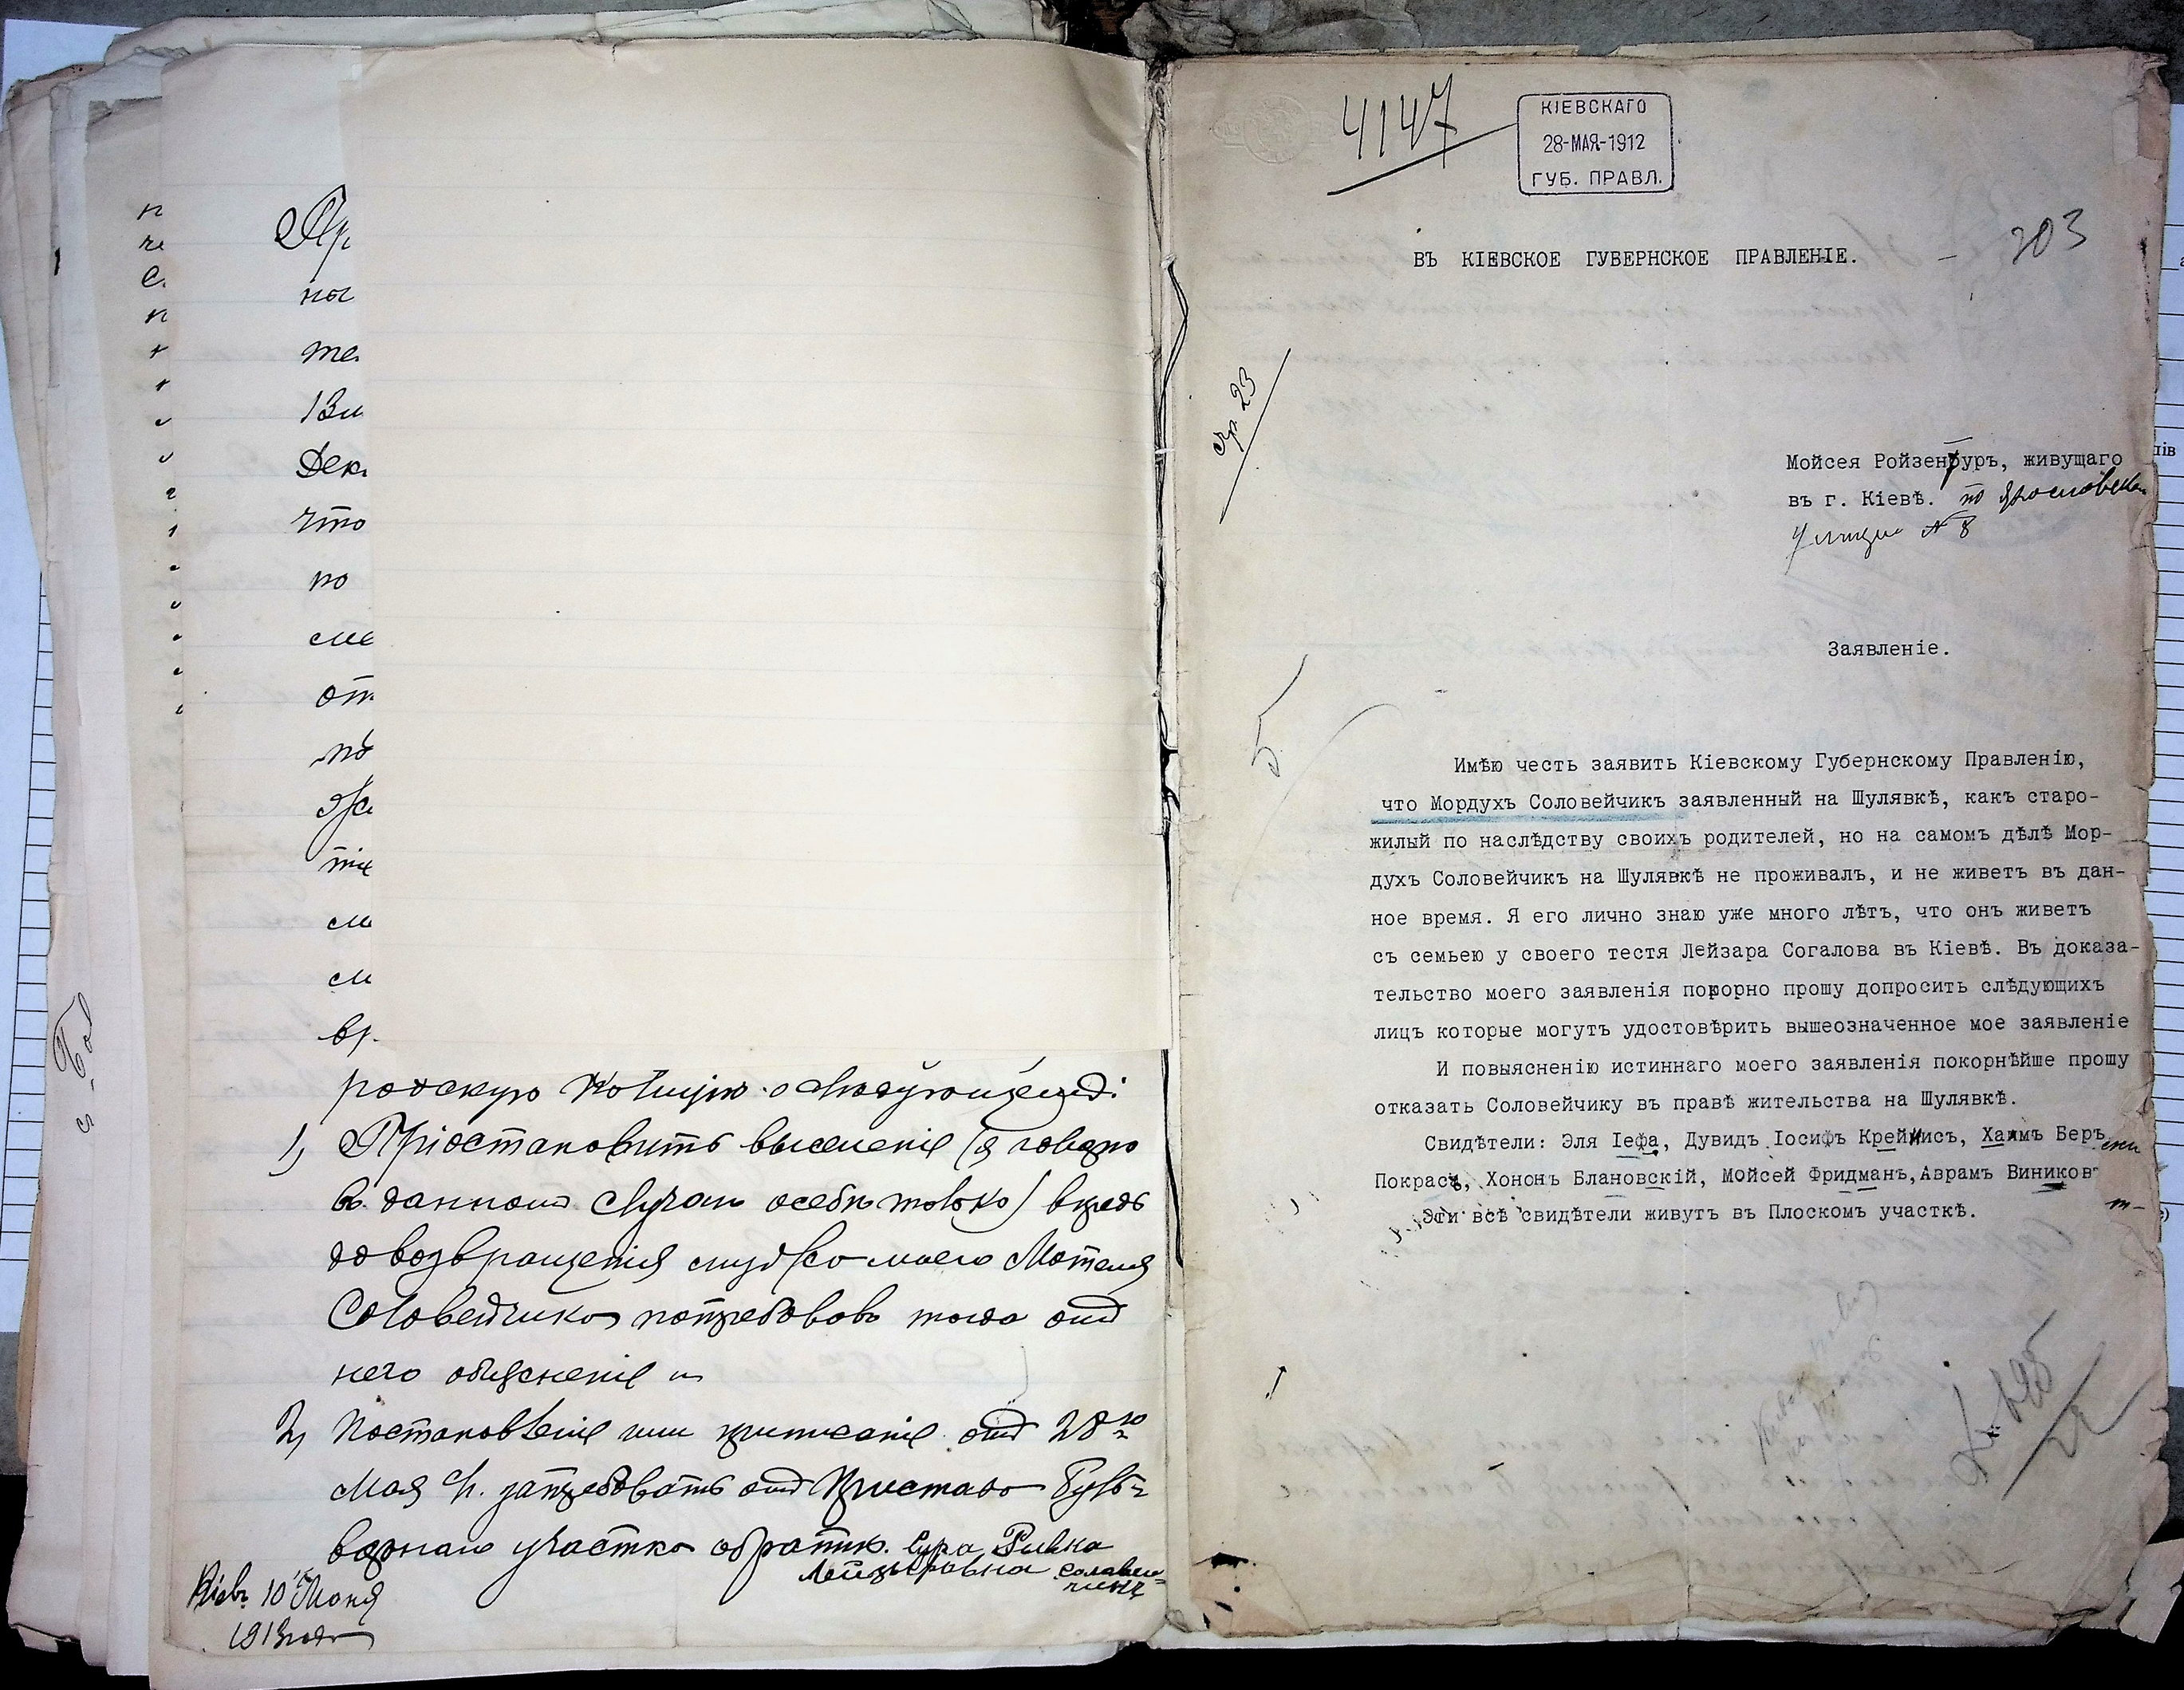 Пр
ны
те
Дек
что
по
сме
от
по
тие
см
вр
родскую Полицію о слѣдующемъ:
1) Пріостановить выселеніе (я говорю
въ данномъ случаѣ особы только) впредь
до возвращенія мужа моего Мотеля
Соловейчика потребовавъ тогда отъ
него объясненіе и
2) Постановленіе или предписаніе отъ 28го
Мая с/г. затребовать отъ Пристава Буль-
варнаго участка обратно. Сура Ривка
Лейзеровна Соловей-
чикъ
Кіевъ 10 Іюня
1913 года
4147
КІЕВСКАГО
28-МАЯ-1912
ГУБ. ПРАВЛ.
203
ВЪ КІЕВСКОЕ ГУБЕРНСКОЕ ПРАВЛЕНІЕ.
стр 23
Мойсея Ройзенбуръ, живущаго
въ г. Кіевѣ. по Ярославской
улицѣ № 8
Заявленіе.
5
Имѣю честь заявить Кіевскому Губернскому Правленію,
что Мордухъ Соловейчикъ заявленный на Шулявкѣ, какъ старо-
жилый по наслѣдству своихъ родителей, но на самомъ дѣлѣ Мор-
духъ Соловейчикъ на Шулявкѣ не проживалъ, и не живетъ въ дан-
ное время. Я его лично знаю уже много лѣтъ, что онъ живетъ
съ семьею у своего тестя Лейзара Согалова въ Кіевѣ. Въ доказа-
тельство моего заявленія покорно прошу допросить слѣдующихъ
лицъ которые могутъ удостовѣрить вышеозначенное мое заявленіе
И повыясненію истиннаго моего заявленія покорнѣйше прошу
отказать Соловейчику въ правѣ жительства на Шулявкѣ.
Свидѣтели: Эля Іефа, Дувидъ Іосифъ Крейнисъ, Хаимъ Беръ
Покрасъ, Хононъ Блановскій, Мойсей Фридманъ, Аврамъ Виников
Эти всѣ свидѣтели живутъ въ Плоскомъ участкѣ.